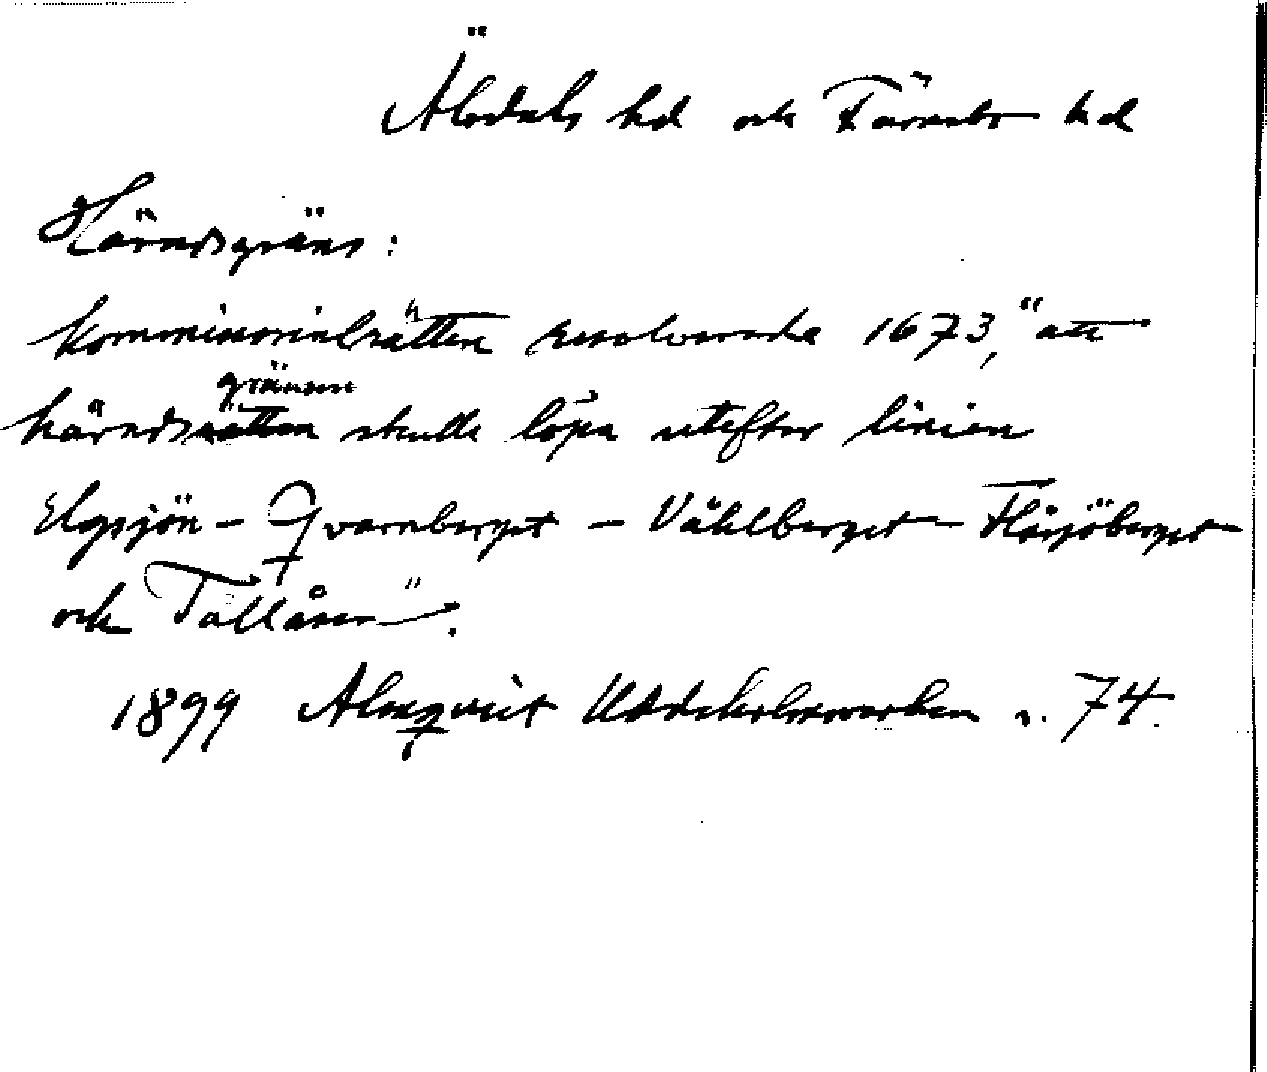 Älvdals hd och Färnebo hd
Häradsgräns:
Kommissorialrätten resolverade 1673, "att
gränsen
häradsrätten skulle löpa utefter linien
Elgsjön – Qvarnberget – Våhlberget – Flåsjöberget
och Tallåsen".
1899 Almquist Uddeholmsverken s. 74.